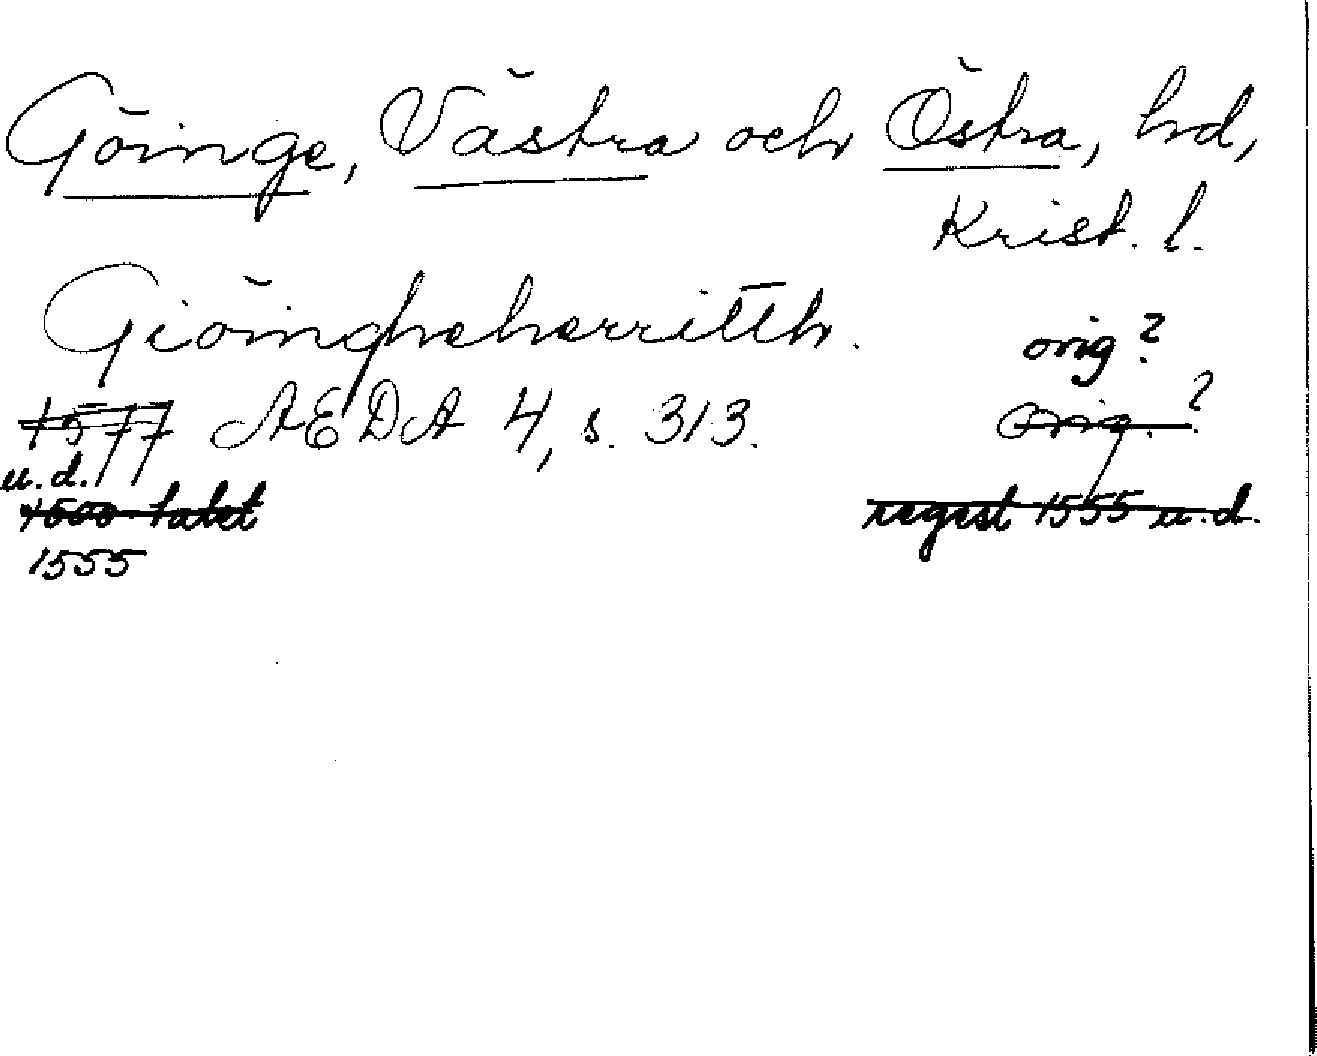 Göinge, Västra och Östra, hd,
Krist. l.
Giöingheherritth. orig?
1577 AEDA 4, s. 313. orig.?
u.d.
1500-talet regest 1555 u.d.
1555